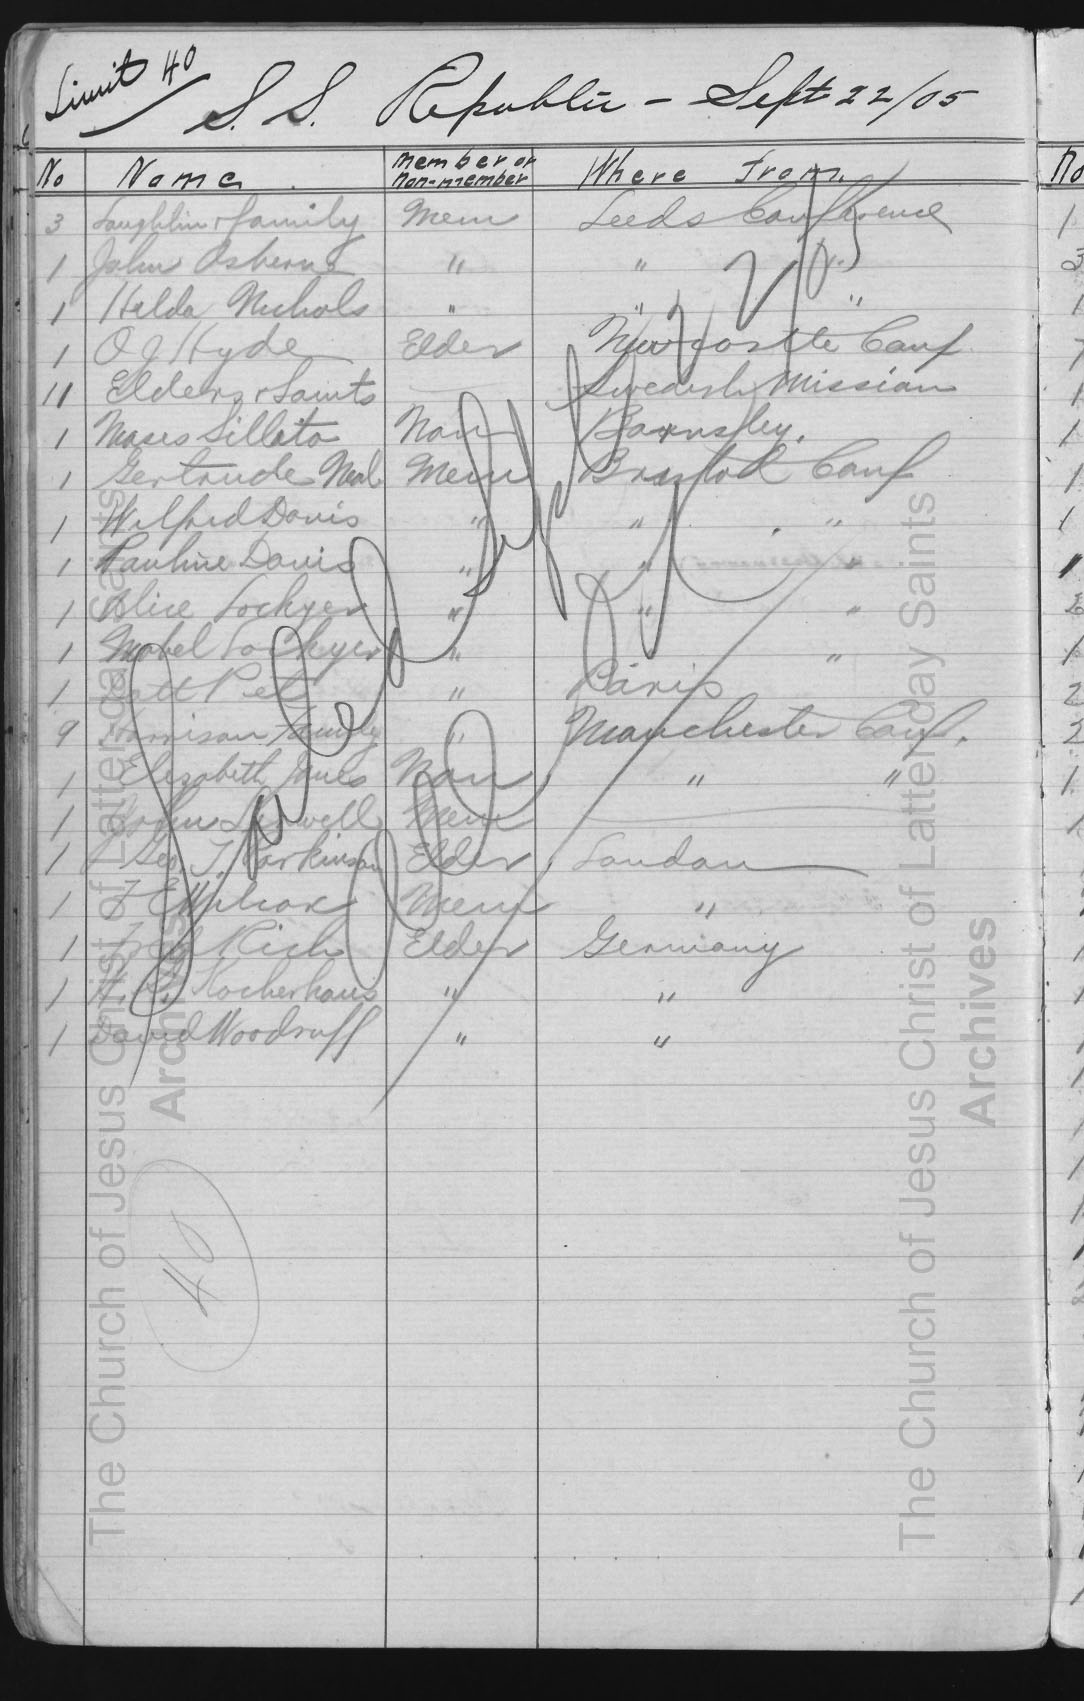 Limit 40
S. S. Republic - Sept 22/05
No Name Member or Non-member Where From.
3 Laughlin & family Mem Leeds Conference
1 John Osborne " " "
1 Hilda Nichols " " "
1 O J Hyde Elder Newcastle Conf
11 Elders & Saints Swedish Mission
1 Moses Sillito Non Barnsley.
1 Gertrude Neal Mem Bristol Conf
1 Wilford Davis " " "
1 Pauline Davis " " "
1 Alice Lockyer " " "
1 Mabel Lockyer " "
1 " Paris
9 Harrison Family " Manchester Conf.
1 Elizabeth Jones Non " "
1 Mem
1 Geo. T. Parkinson Elder London
1 Wilcox Mem "
1 Fred Rich Elder Germany
1 Kocherhans " "
1 David Woodruff " "
40
The Church of Jesus Christ of Latter-day Saints
Archives
The Church of Jesus Christ of Latter-day Saints
Archives